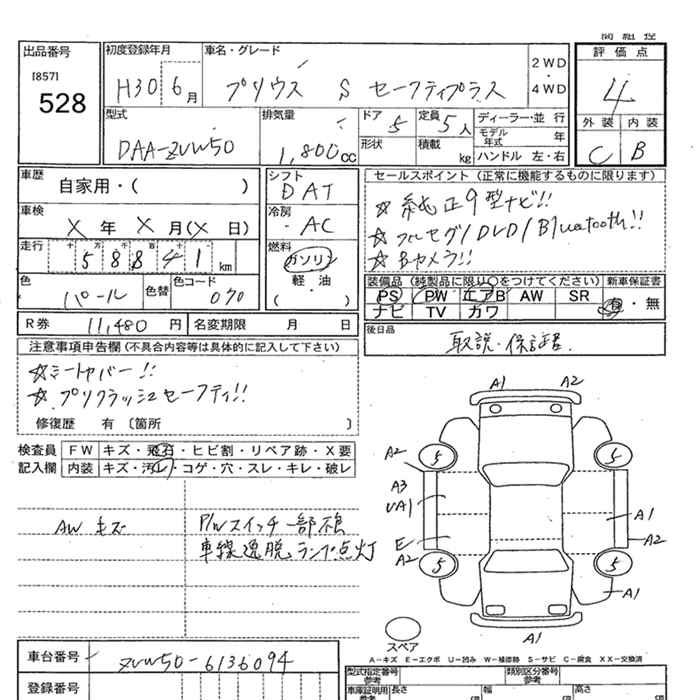 出品番号
[857]
528
初度登録年月
H30 6月
車名・グレード
プリウス S セーフティプラス
2WD
・
4WD
評価点
4
外装 内装
C B
型式
DAA-ZVW50
排気量
1,800cc
ドア 5
定員 5人
形状
積載 kg
ディーラー・並 行
モデル年式 年
ハンドル 左・右
車歴
自家用・( )
車検
X年 X月(X 日)
走行
十 万 千 百 十 一
58841 km
色
パール
色替
色コード
070
シフト
DAT
冷房
・AC
燃料
ガソリン
軽・油
( )
セールスポイント (正常に機能するものに限ります)
☆ 純正9型ナビ!!
☆ フルセグ/DVD/Bluetooth!!
☆ Bカメラ!!
装備品 (純製品に限り○をつけてください)
PS PW エアB AW SR
ナビ TV カワ
新車保証書
有・無
R券 11,480円
名変期限 月 日
後日品
取説・保証書
注意事項申告欄 (不具合内容等は具体的に記入して下さい)
☆シートカバー!!
☆プリクラッシュセーフティ!!
修復歴 有〔箇所 〕
検査員
記入欄
FW キズ・飛石・ヒビ割・リペア跡・X要
内装 キズ・汚レ・コゲ・穴・スレ・キレ・破レ
AW キズ
P/Wスイッチ一部不良
車線逸脱ランプ点灯
A1 A2
5 5
A2
A3
UA1
E
A2
A1
A2
5 5
A1
A1
スペア
A－キズ E－エクボ U－凹み W－補修跡 S－サビ C－腐食 XX－交換済
車台番号
ZVW50-6136094
登録番号
型式指定番号
参考
類別区分番号
参考
車庫証明用
参考
長さ
幅
高さ